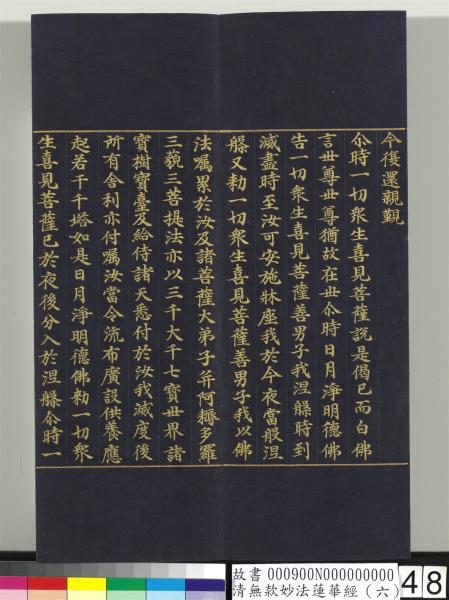 今復還親覲
尒時一切衆生喜見菩薩說是偈已而白佛
言世尊世尊猶故在世尒時日月淨明德佛
告一切衆生喜見菩薩善男子我涅槃時到
滅盡時至汝可安施牀座我於今夜當般涅
槃又勑一切衆生喜見菩薩善男子我以佛
法囑累於汝及諸菩薩大弟子并阿耨多羅
三藐三菩提法亦以三千大千七寶世界諸
寶樹寶臺及給侍諸天悉付於汝我滅度後
所有舍利亦付囑汝當令流布廣設供養應
起若干千塔如是日月淨明德佛勑一切衆
生喜見菩薩已於夜後分入於涅槃尒時一
故書 000900N000000000
清無款妙法蓮華經（六）
48